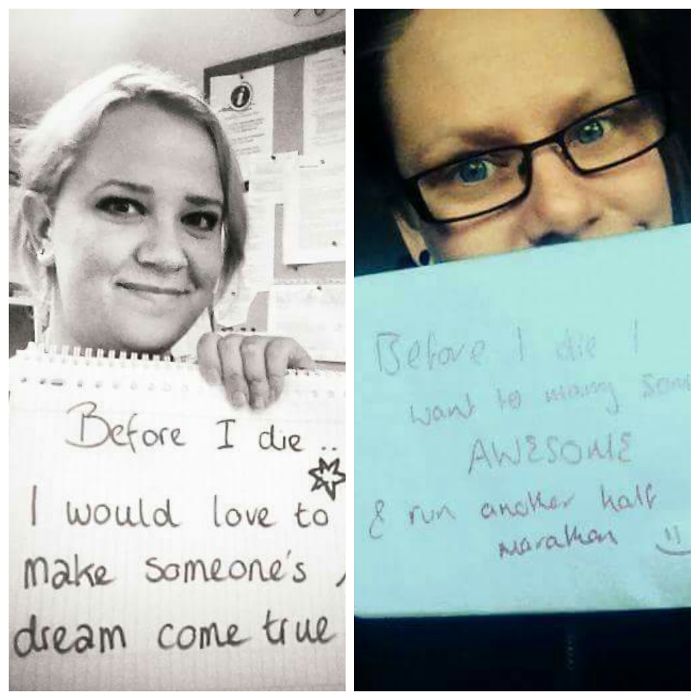 Before I die ..
I would love to
make someone's
dream come true
Before I die I
want to marry som
AWESOME
& run another half
marathon